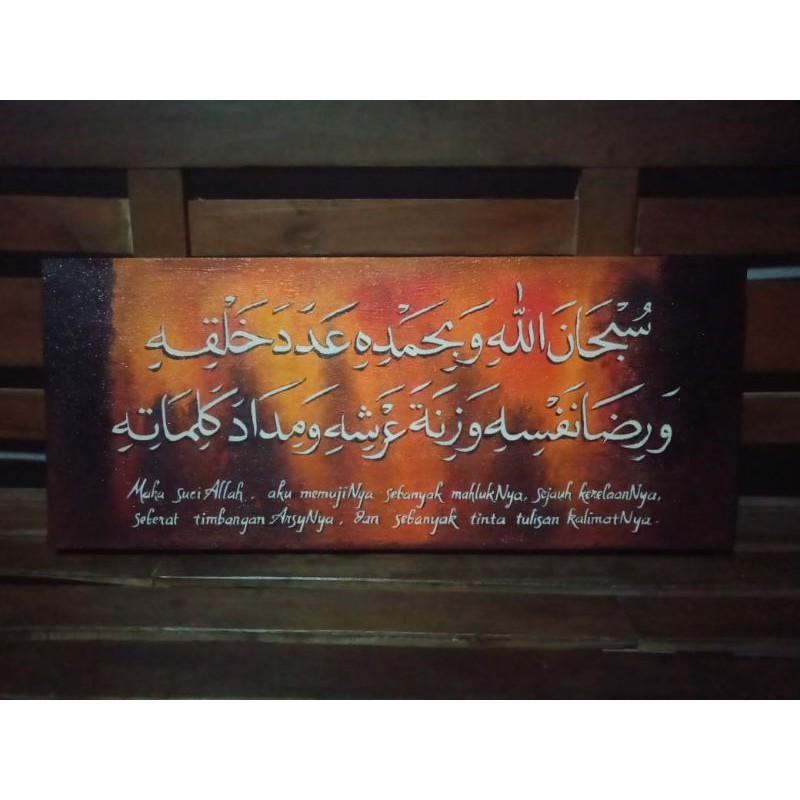 سُبْحَانَ اللهِ وَبِحَمْدِهِ عَدَدَ خَلْقِهِ
وَرِضَا نَفْسِهِ وَزِنَةَ عَرْشِهِ وَمِدَادَ كَلِمَاتِهِ
Maha suci Allah. aku memujiNya sebanyak mahlukNya, sejauh kerelaanNya,
seberat timbangan ArsyNya, dan sebanyak tinta tulisan kalimatNya.